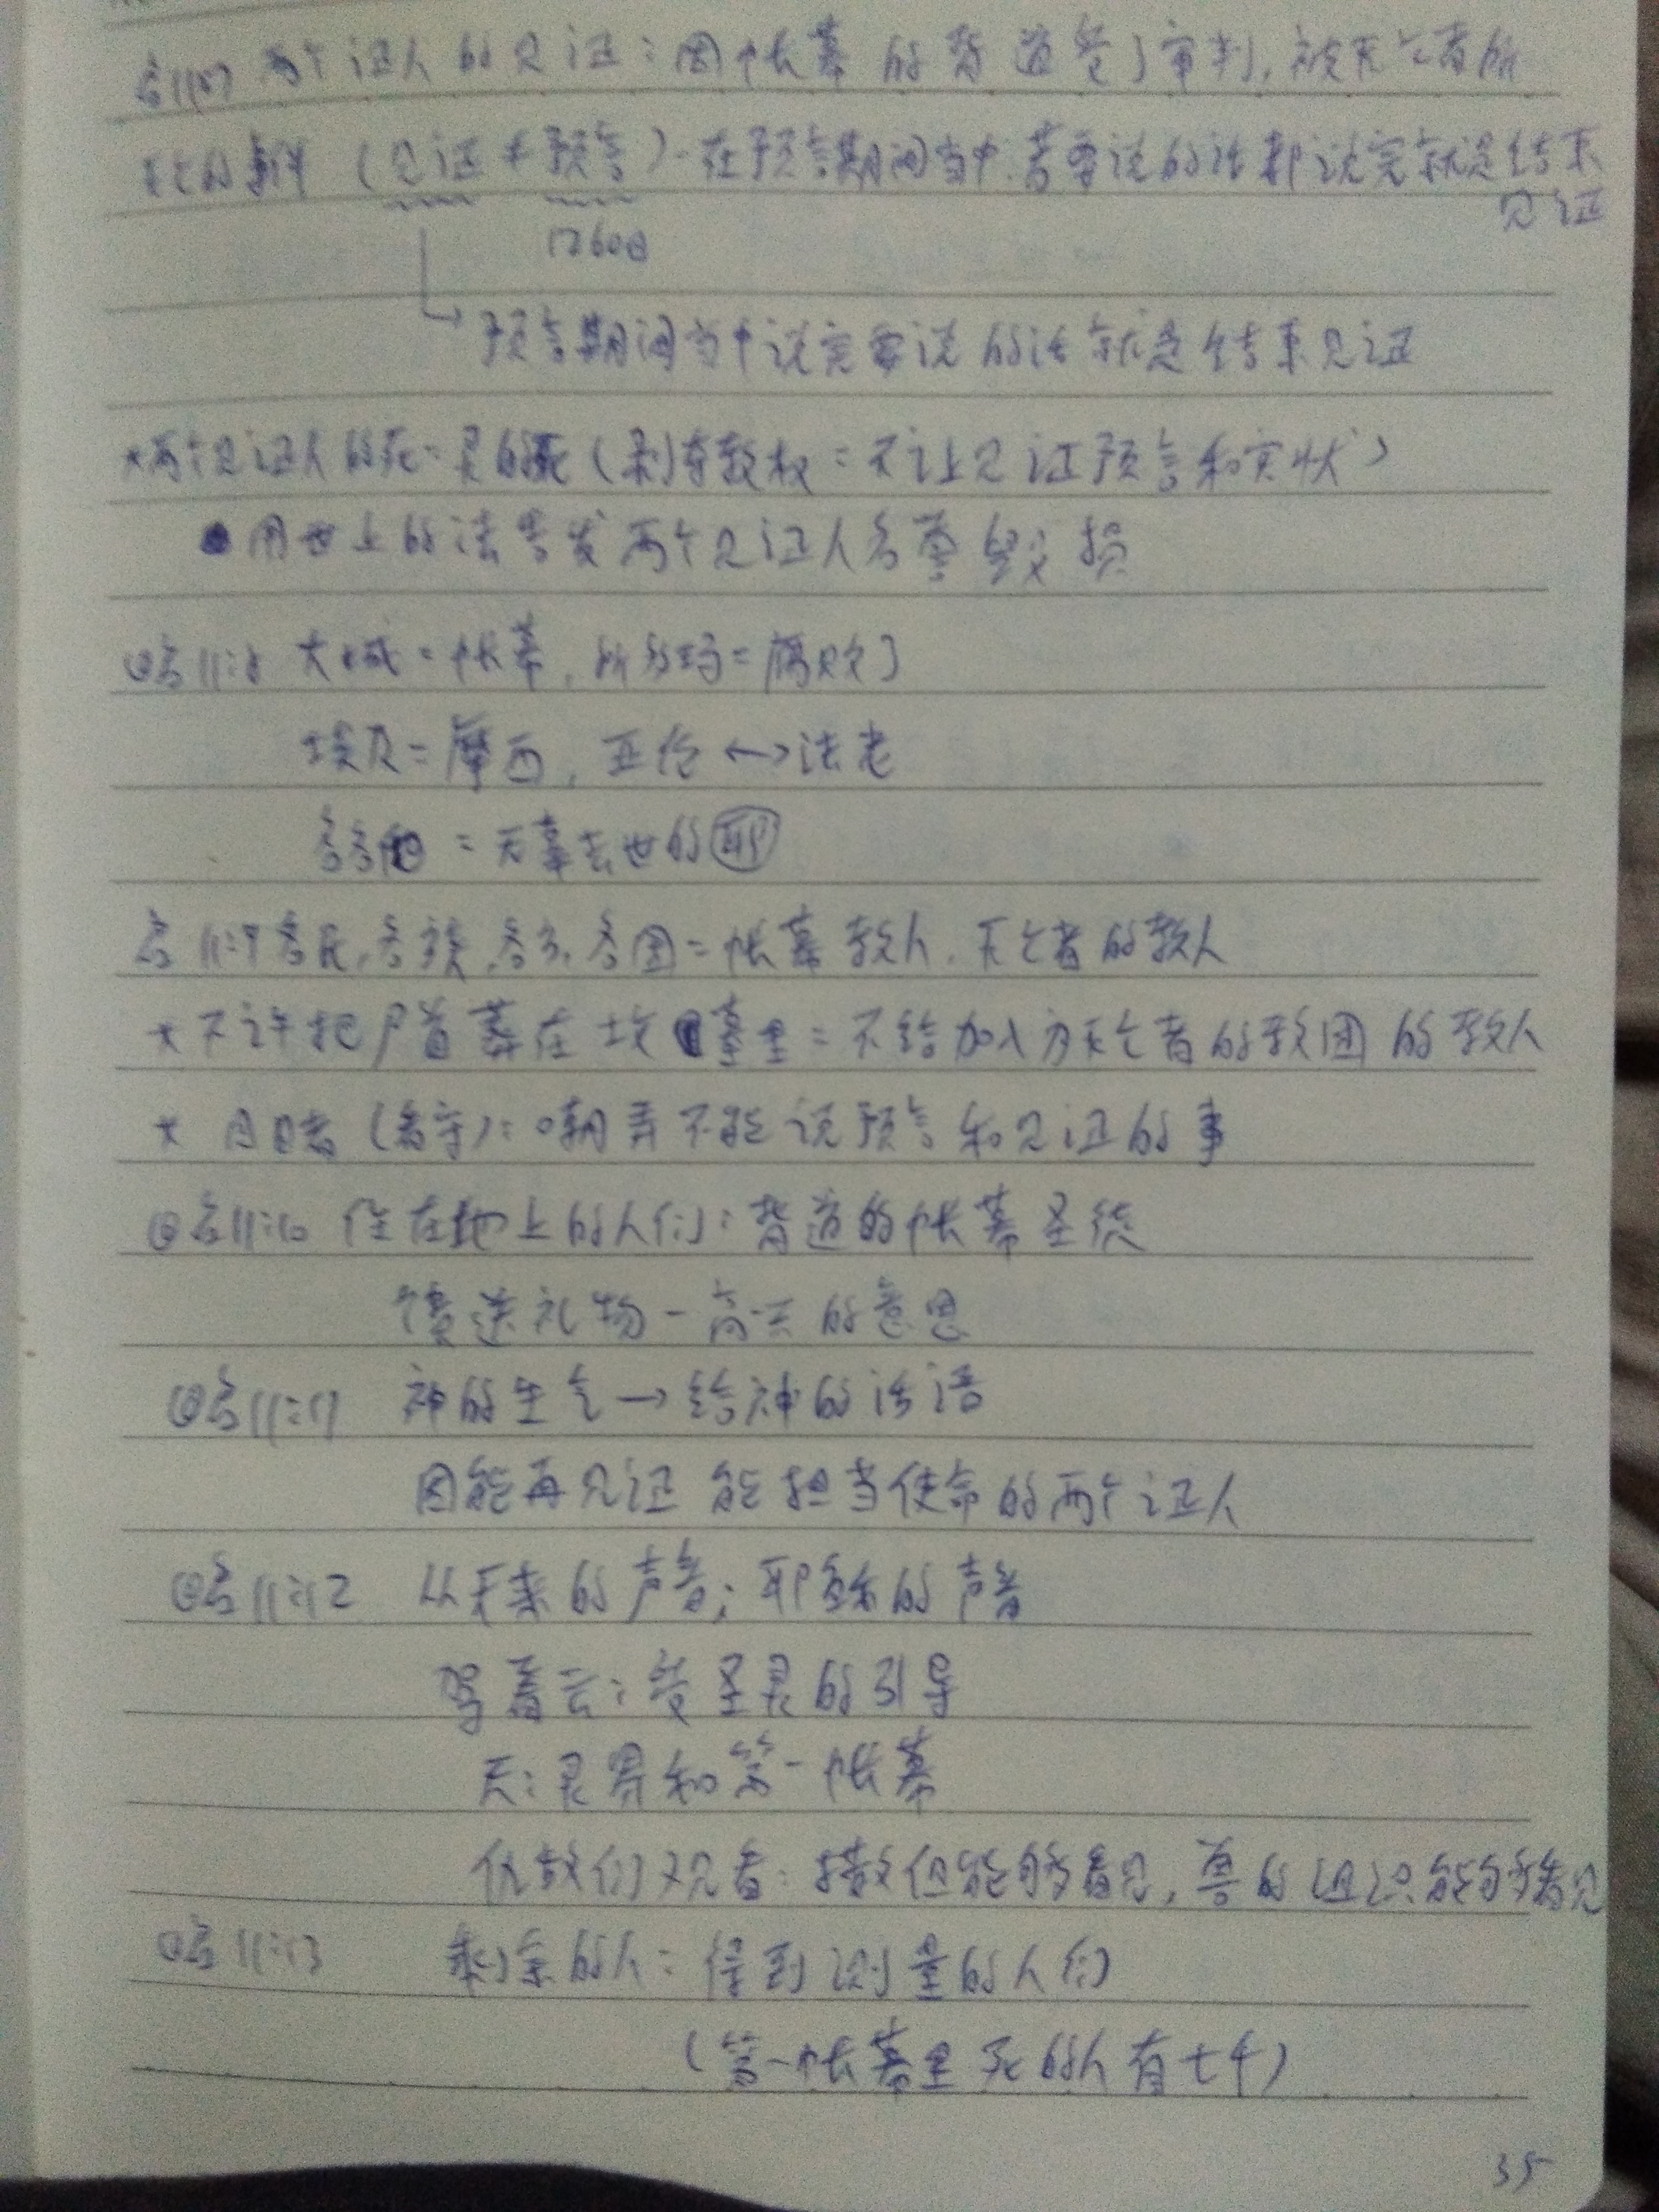 启11:7 两个证人的见证：因帐幕的背道受了审判，被灭亡者所
灭亡的事件（见证≠预言）-在预言期间当中.若要说的话都说完就是结束
见证
1260日
预言期间当中说完要说的话就是结束见证
*两个见证人的死=灵的死（剥夺教权=不让见证预言和实状）
●用世上的法告发两个见证人名誉毁损
启11:8 大城=帐幕，所多玛=腐败了
埃及=摩西，亚伦↔法老
各各他=无辜去世的耶
启11:9各民,各族,各方,各国=帐幕教人，灭亡者的教人
*不许把尸首葬在坟墓里=不给加入为灭亡者的教团的教人
*（看守）：嘲弄不能说预言和见证的事
启11:10 住在地上的人们：背道的帐幕圣徒
馈送礼物-高兴的意思
启11:11 神的生气→给神的话语
因能再见证 能担当使命的两个证人
启11:12 从天来的声音：耶稣的声音
驾着云：受圣灵的引导
天：灵界和第一帐幕
仇敌们观看：撒但能够看见，兽的组织能够看见
启11:13 剩余的人：得到测量的人们
（第一帐幕里死的人有七千）
35